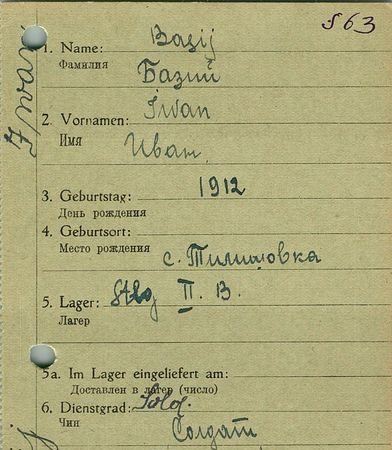 § 63
Basij
1. Name:
Фамилия
Базий
Iwan
2. Vornamen:
Имя
Иван.
1912
3. Geburtstag:
День рождения
4. Geburtsort:
Место рождения
с.
5. Lager: Stlg II. B.
Лагер
5a. Im Lager eingeliefert am:
Доставлен в лагер (число)
6. Dienstgrad: Sold.
Чин
Солдат